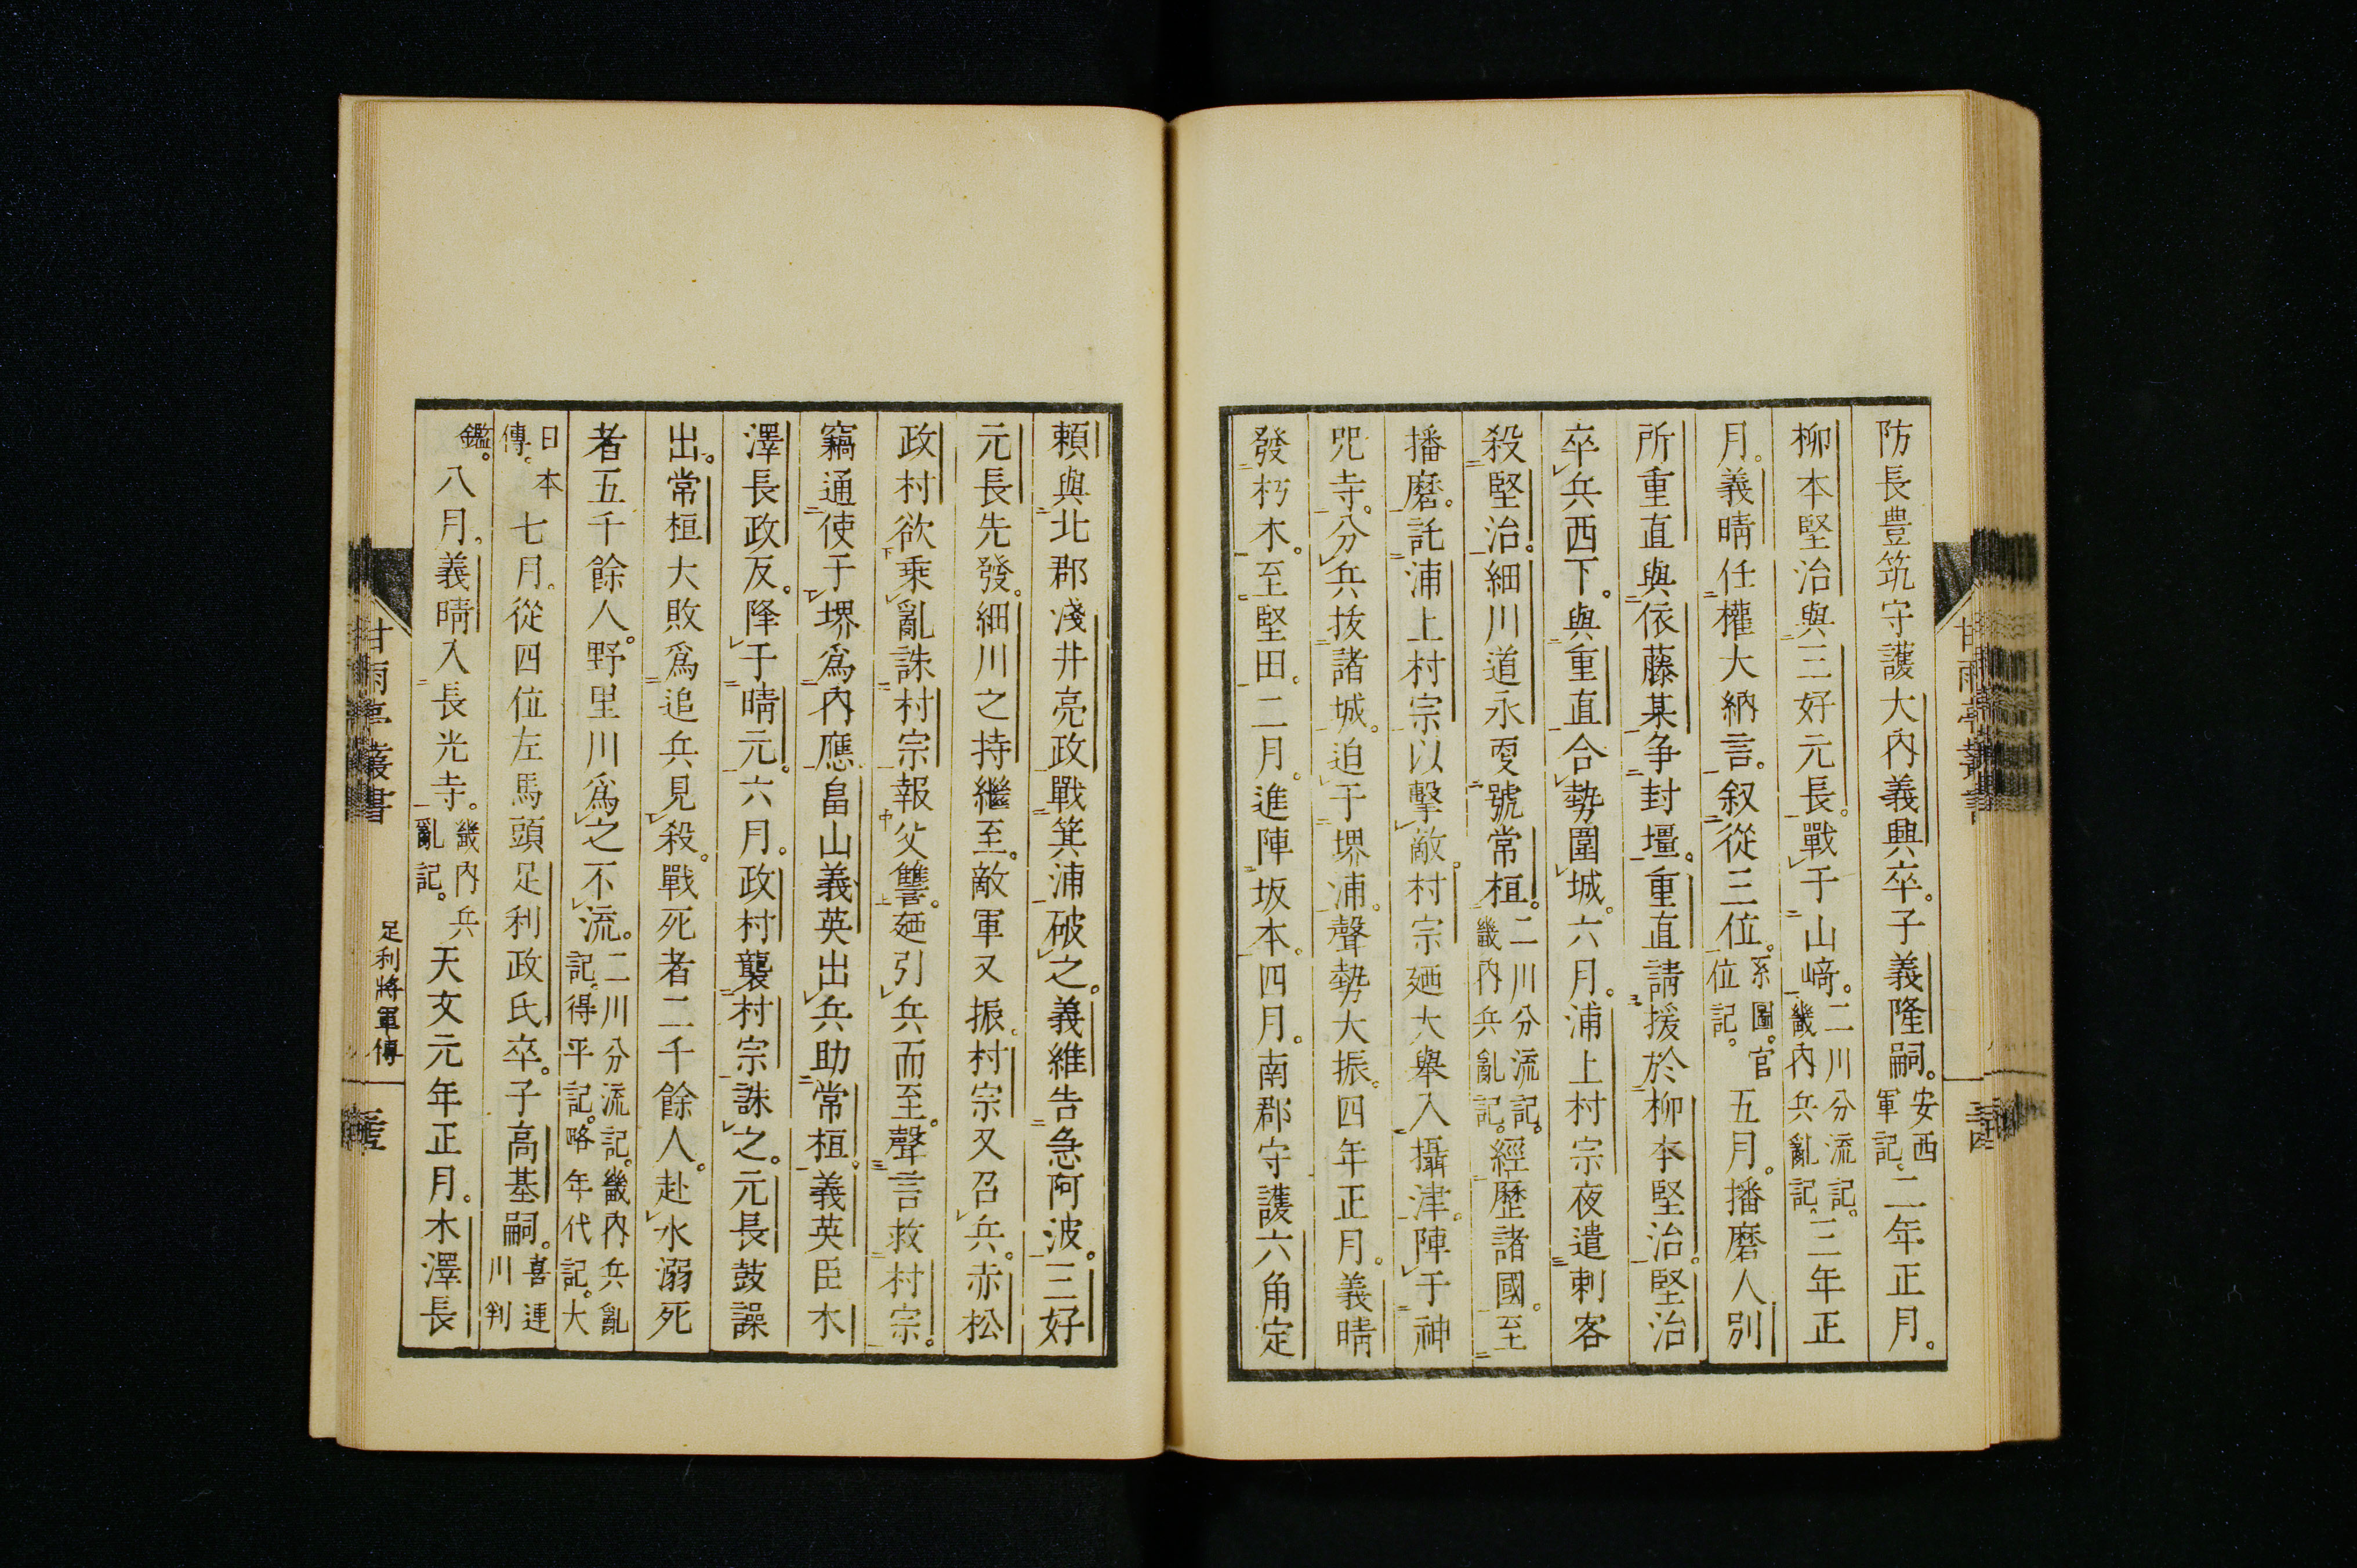 防長豊筑守護大内義興卒。子義隆嗣。安西軍記。二年正月。
柳本堅治與三好元長。戰于山﨑。二川分流記。畿内兵亂記。三年正
月。義晴任權大納言。叙從三位。系圖。官位記。五月。播磨人別
所重直與依藤某争封壃。重直請援於柳本堅治。堅治
卒兵西下。與重直合勢圍城。六月。浦上村宗夜遣刺客
殺堅治。細川道永更號常桓。二川分流記。畿内兵亂記。經歴諸國。至
播磨。託浦上村宗以擊敵。村宗廼大舉入攝津。陣于神
咒寺。分兵抜諸城。迫于堺浦。聲勢大振。四年正月。義晴
發朽木。至堅田。二月。進陣坂本。四月。南郡守護六角定
頼與北郡淺井亮政戰箕浦破之。義維告急阿波。三好
元長先發。細川之持繼至。敵軍又振。村宗又召兵。赤松
政村欲乗亂誅村宗報父讐。廼引兵而至。聲言救村宗。
竊通使于堺爲内應。畠山義英出兵助常桓。義英臣木
澤長政反。降于晴元。六月。政村襲村宗誅之。元長鼓譟
出。常桓大敗爲追兵見殺。戰死者二千餘人。赴水溺死
者五千餘人。野里川爲之不流。二川分流記。畿内兵亂記。得平記。略年代記。大
日本傳。七月。從四位左馬頭足利政氏卒。子高基嗣。喜連川判
鑑。八月。義晴入長光寺。畿内兵亂記。天文元年正月。木澤長
甘雨亭叢書
足利將軍傳